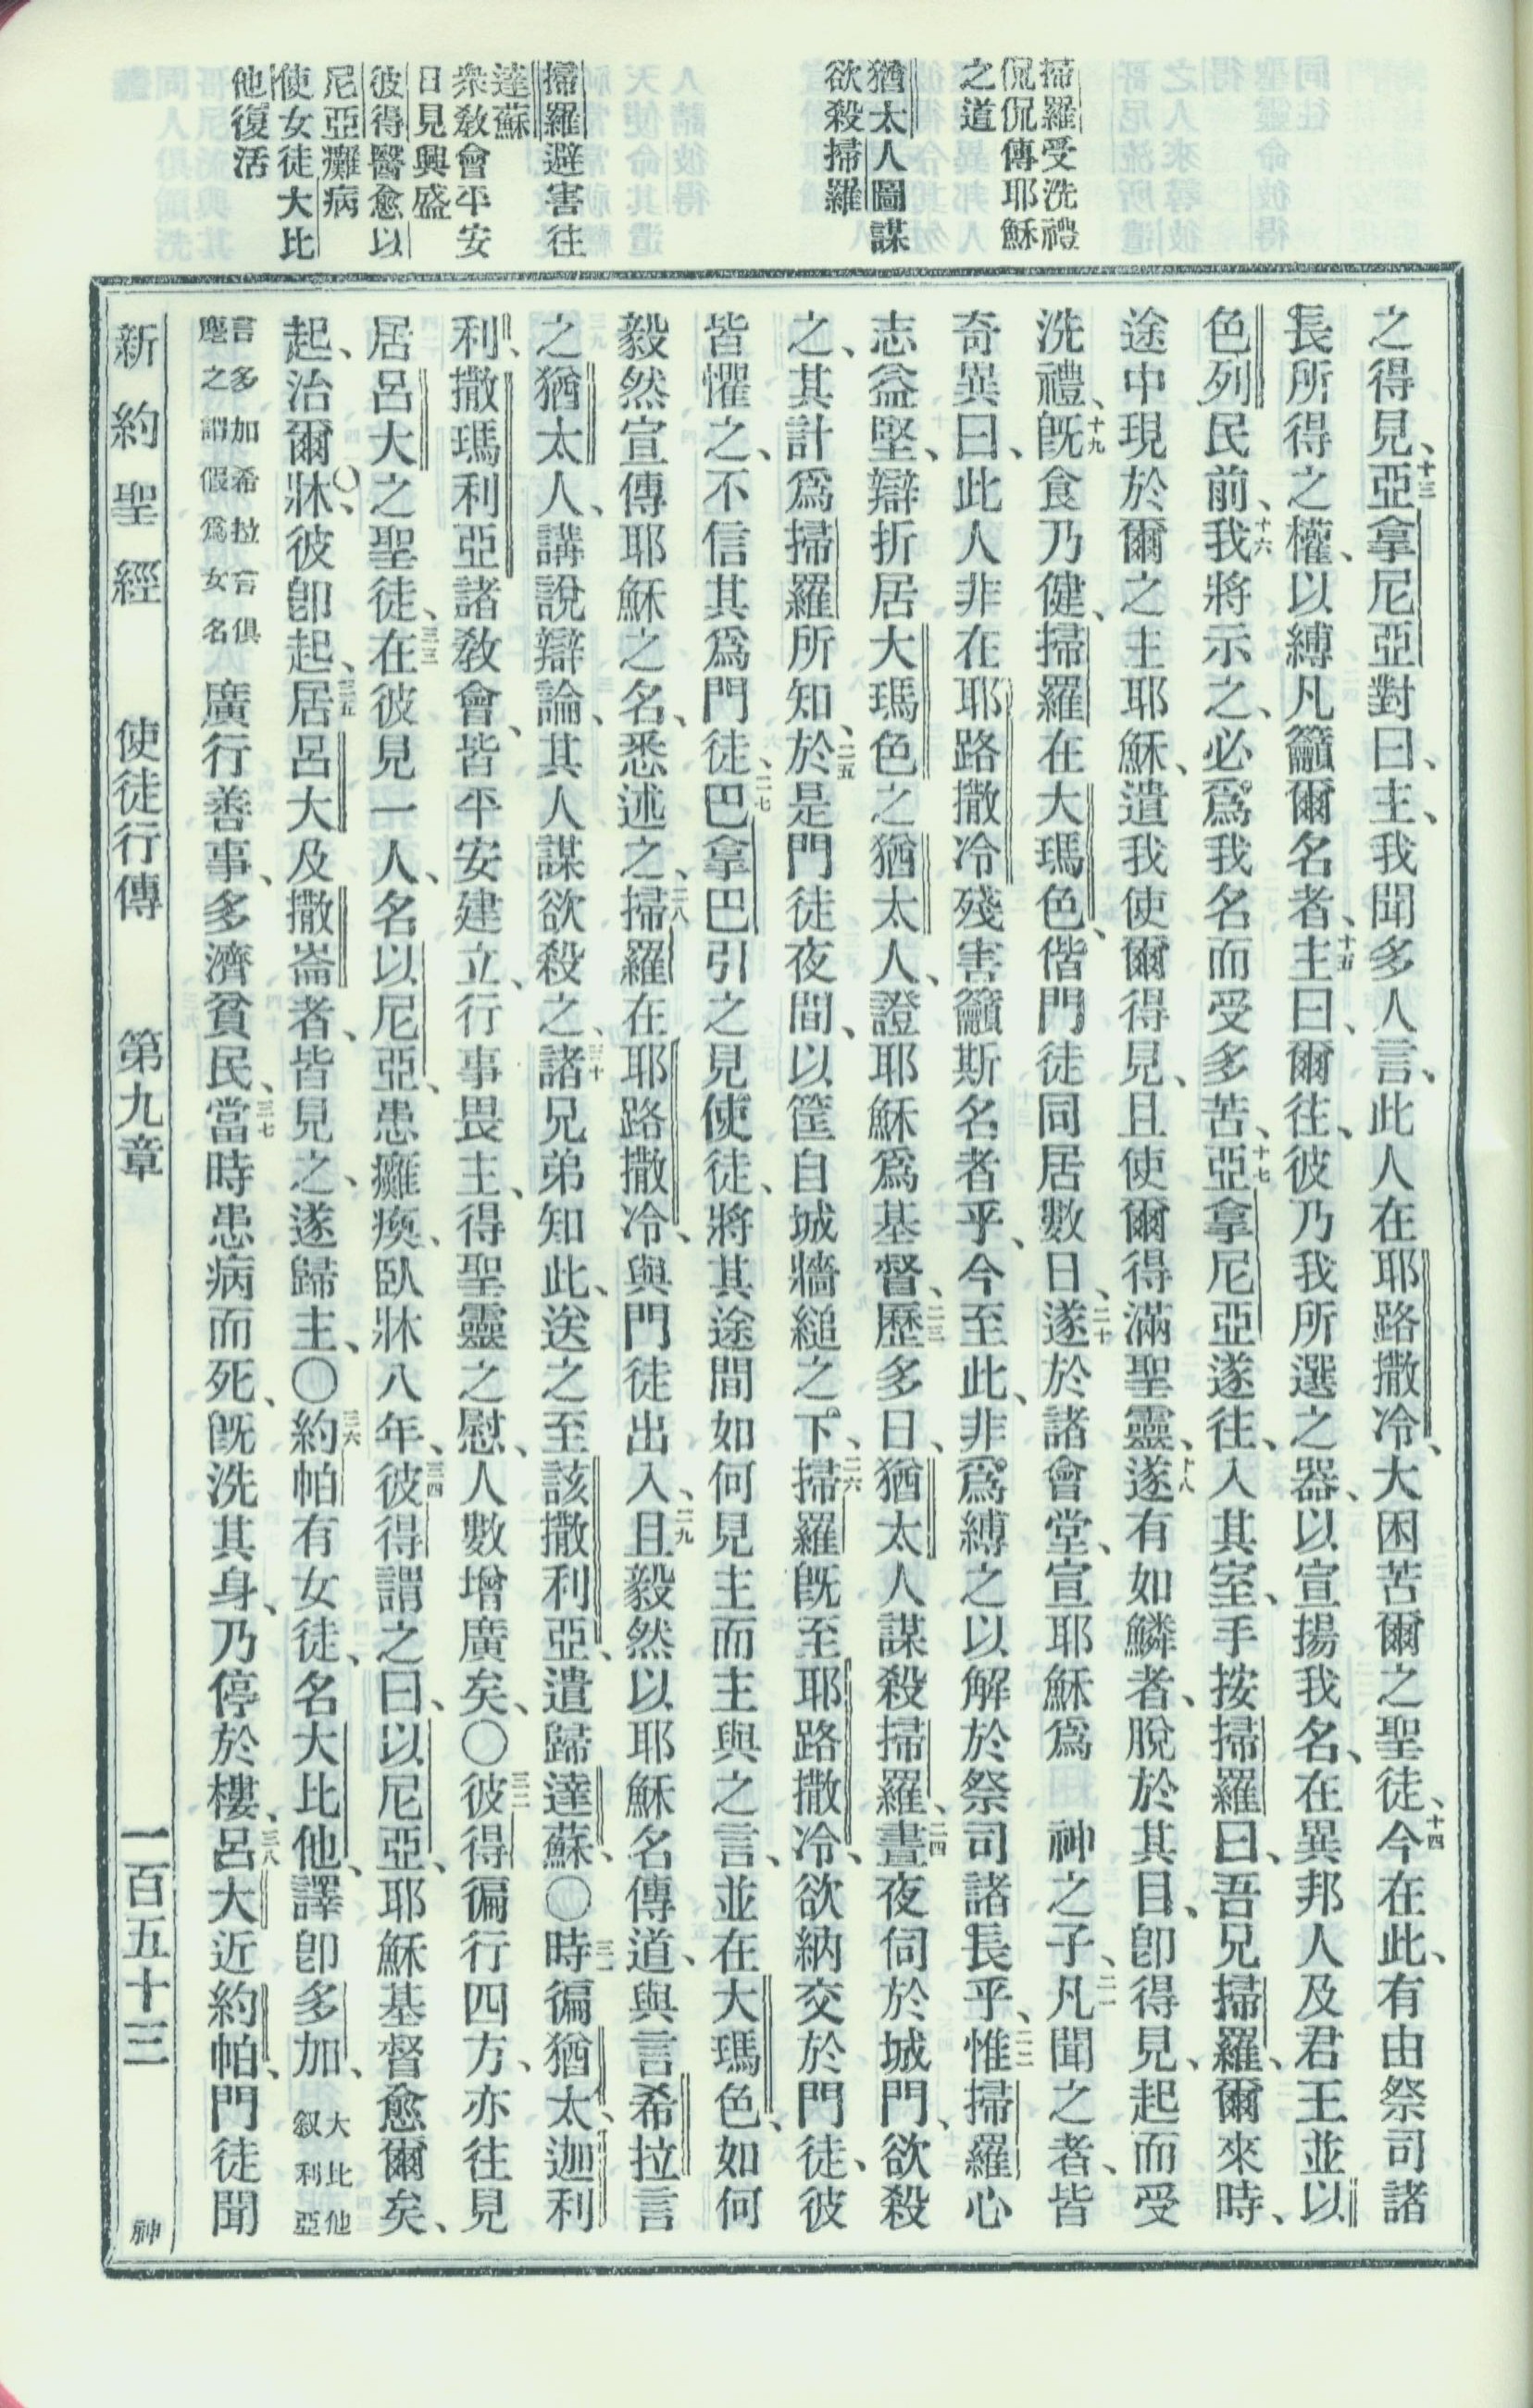 掃羅受洗禮
侃侃傳耶穌
之道
猶太人圖謀
欲殺掃羅
掃羅避害往
達蘇
衆教會平安
日見興盛
彼得醫愈以
尼亞癱病
使女徒大比
他復活
之得見、十三亞拿尼亞對曰、主、我聞多人言、此人在耶路撒冷、大困苦爾之聖徒、十四今在此、有由祭司諸
長所得之權、以縛凡籲爾名者、十五主曰、爾往、彼乃我所選之器、以宣揚我名、在異邦人及君王並以
色列民前、十六我將示之、必爲我名而受多苦、十七亞拿尼亞遂往、入其室、手按掃羅曰、吾兄掃羅、爾來時、
途中現於爾之主耶穌、遣我使爾得見、且使爾得滿聖靈、十八遂有如鱗者、脫於其目、卽得見、起而受
洗禮、十九旣食乃健、掃羅在大瑪色、偕門徒同居數日、二十遂於諸會堂、宣耶穌爲 神之子、二一凡聞之者、皆
奇異曰、此人非在耶路撒冷殘害籲斯名者乎、今至此、非爲縛之以解於祭司諸長乎、二二惟掃羅心
志益堅、辯折居大瑪色之猶太人、證耶穌爲基督、二三歷多日、猶太人謀殺掃羅、二四晝夜伺於城門、欲殺
之、其計爲掃羅所知、二五於是門徒夜間、以筐自城牆縋之下、二六掃羅旣至耶路撒冷、欲納交於門徒、彼
皆懼之、不信其爲門徒、二七巴拿巴引之見使徒、將其途間如何見主而主與之言、並在大瑪色、如何
毅然宣傳耶穌之名、悉述之、二八掃羅在耶路撒冷、與門徒出入、二九且毅然以耶穌名傳道、與言希拉言
之猶太人、講說辯論、其人謀欲殺之、三十諸兄弟知此、送之至該撒利亞、遣歸達蘇、〇三一時徧猶太、迦利
利、撒瑪利亞諸教會、皆平安建立、行事畏主、得聖靈之慰、人數增廣矣、〇三二彼得徧行四方、亦往見
居呂大之聖徒、三三在彼見一人、名以尼亞、患癱瘓、臥牀八年、三四彼得謂之曰、以尼亞、耶穌基督愈爾矣、
起、治爾牀、彼卽起、三五居呂大及撒崙者、皆見之、遂歸主、〇三六約帕有女徒、名大比他、譯卽多加、大比他叙利亞
言多加希拉言俱塵之謂假爲女名 廣行善事、多濟貧民、三七當時患病而死、旣洗其身、乃停於樓、三八呂大近約帕、門徒聞
新約聖經 使徒行傳 第九章 一百五十三 神